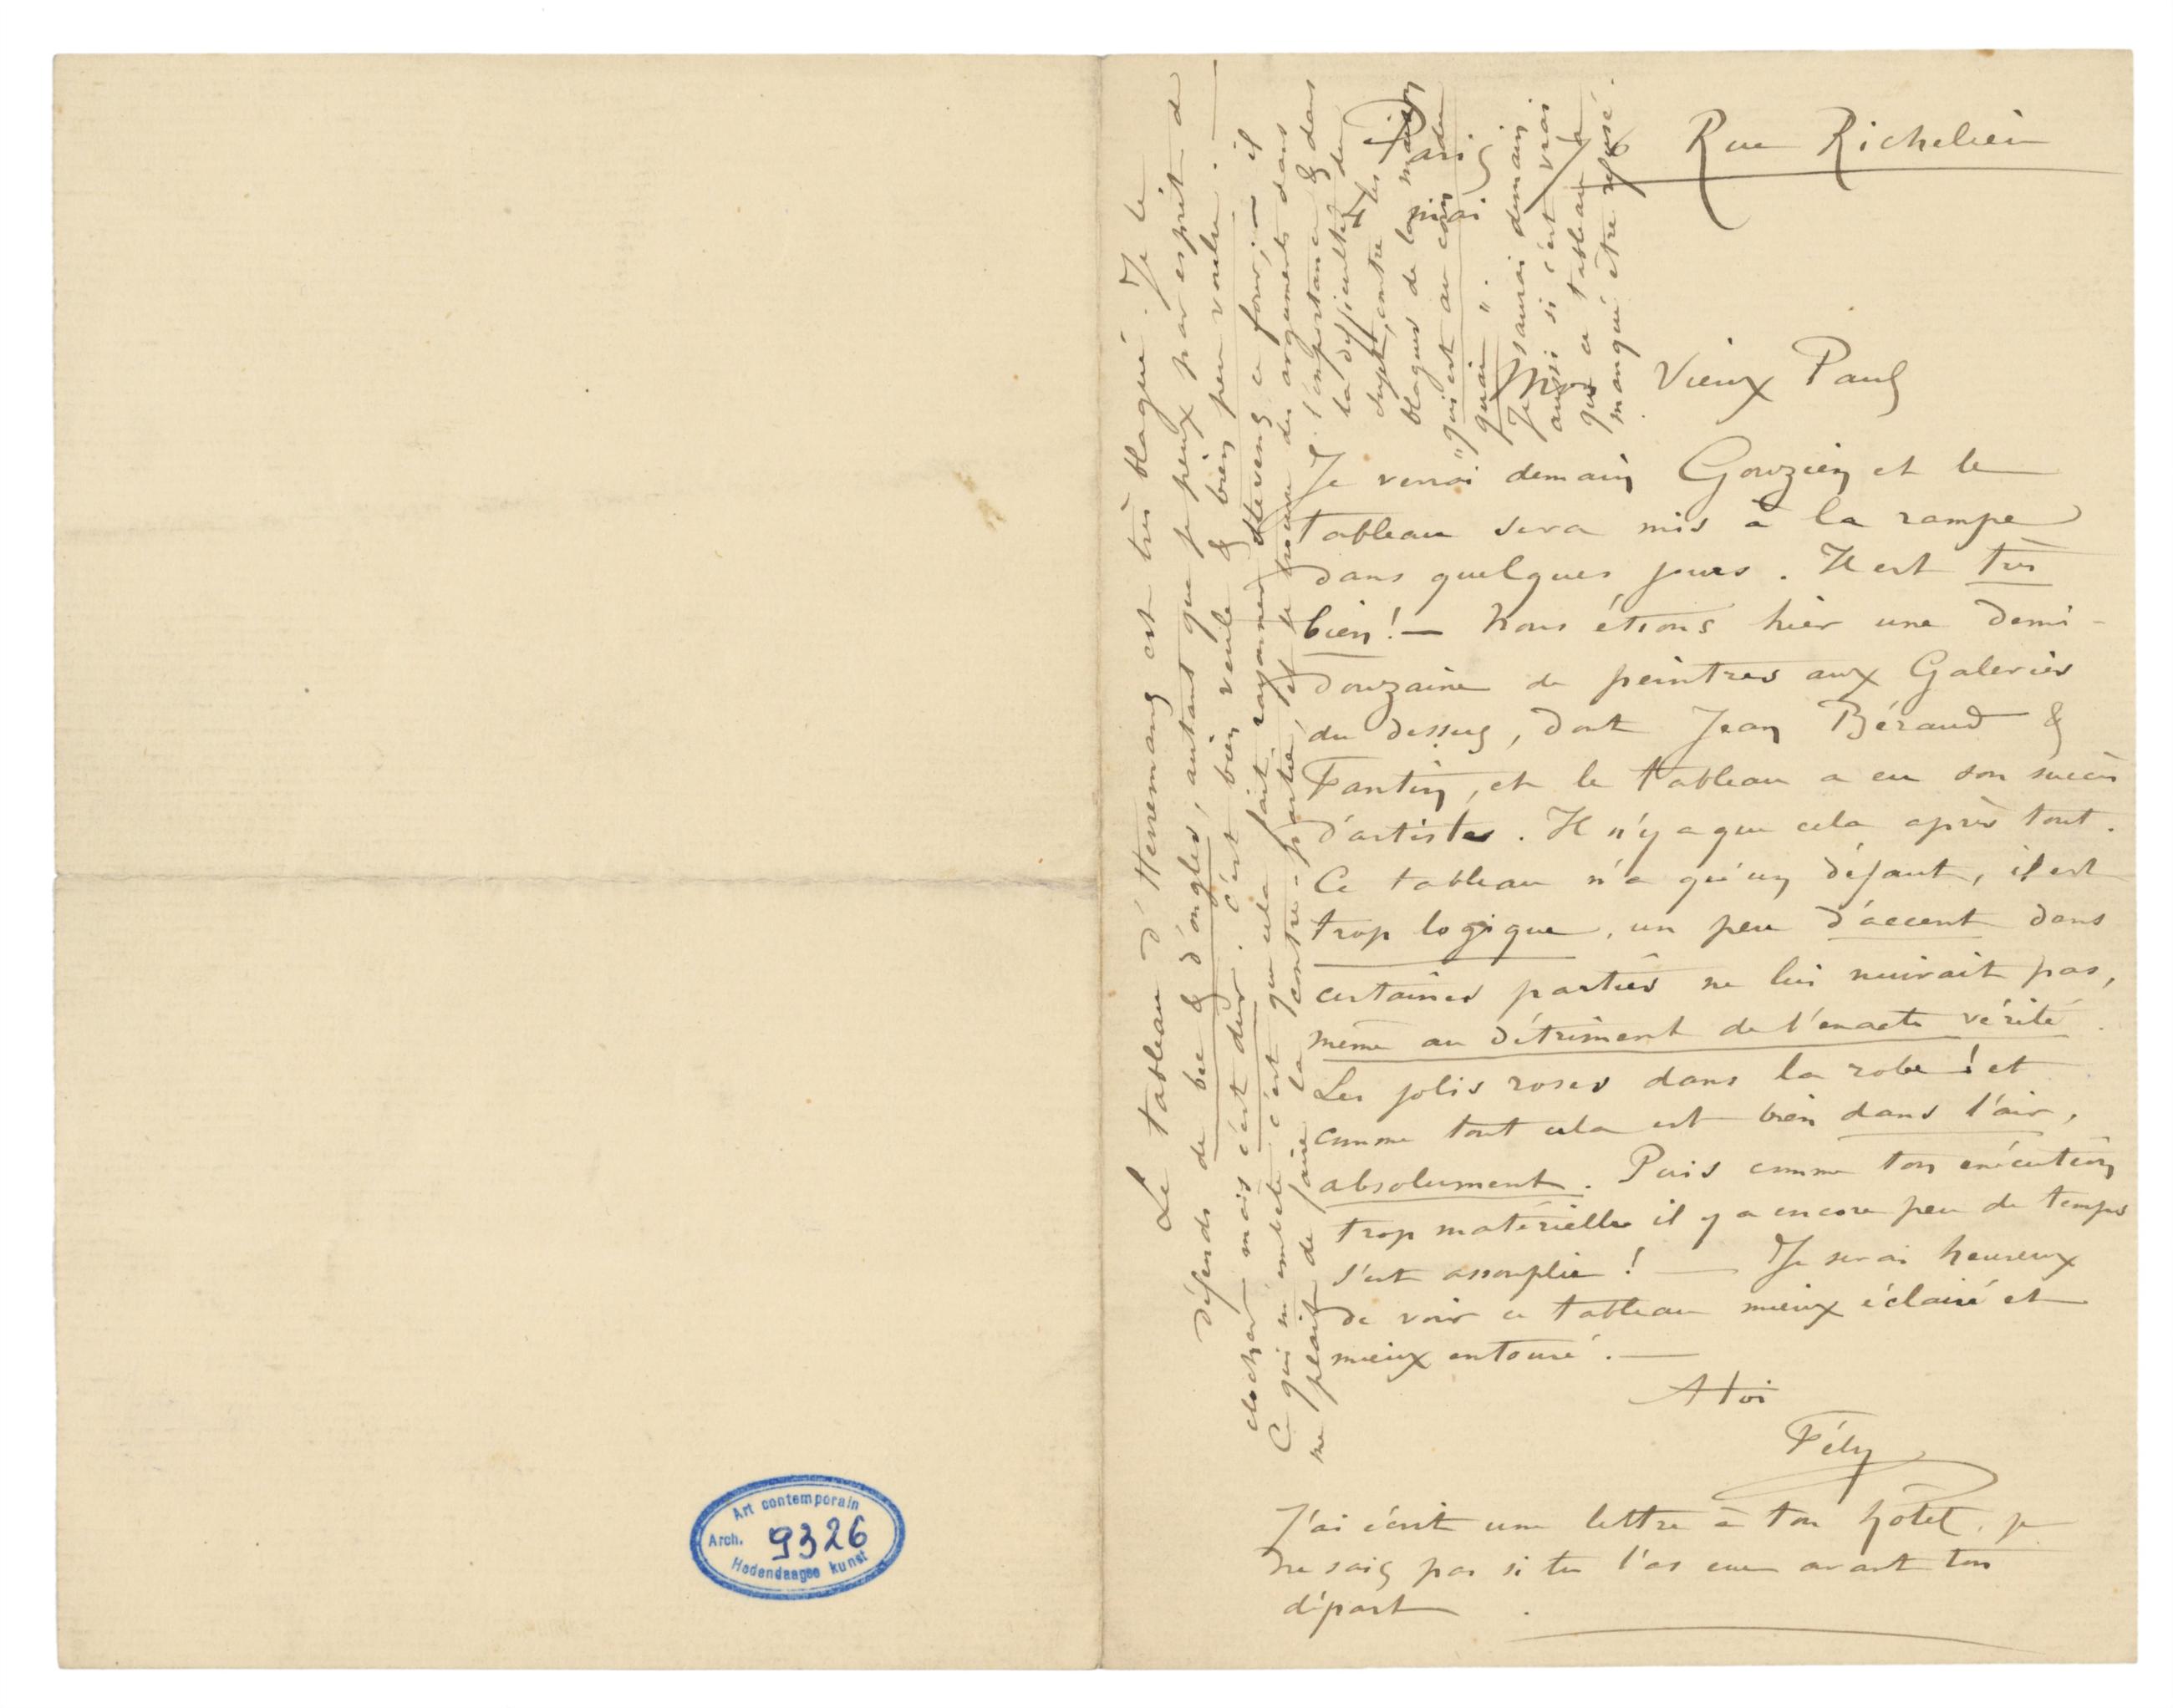 Paris 76 Rue Richelieu
mai
Mon Vieux Paul
Je verrai demain Gouzien et le
tableau sera mis à la rampe
dans quelques jours. Il est très
bien! — Nous étions hier une demi-
douzaine de peintres aux Galeries
du dessus, dont Jean Béraud &
Fantin, et le tableau a eu son succès
d'artistes. Il n'y a que cela après tout.
Ce tableau n'a qu'un défaut, il est
trop logique, un peu d'accent dans
certaines parties ne lui nuirait pas,
même au détriment de l'exacte vérité.
Les jolis roses dans la robe! et
comme tout cela est bien dans l'air,
absolument. Puis comme ton exécution
trop matérielle il y a encore peu de temps
s'est assouplie! — Je serai heureux
de voir ce tableau mieux éclairé et
mieux entouré. —
A toi
Fély
J'ai écrit une lettre à ton hôtel, je
ne sais pas si tu l'as eue avant ton
départ.
Le tableau d'Hennemans est très blagué. Je le
défends de bec & d'ongles, autant que je peux par esprit de
clocher mais c'est dur. C'est bien veule & bien peu voulu. —
Ce qui m'embête c'est que cela fait rayonner Stevens ce four; — il
me plait de faire la contre-partie, et je trouve des arguments dans
l'importance & dans
la difficulté du
sujet, contre les
blagues de la maison
"qui est au coin du
quai".
Je saurai demain
aussi si c'est vrai
que ce tableau a
manqué être refusé.
Art contemporain
Arch. 9326
Hedendaagse kunst